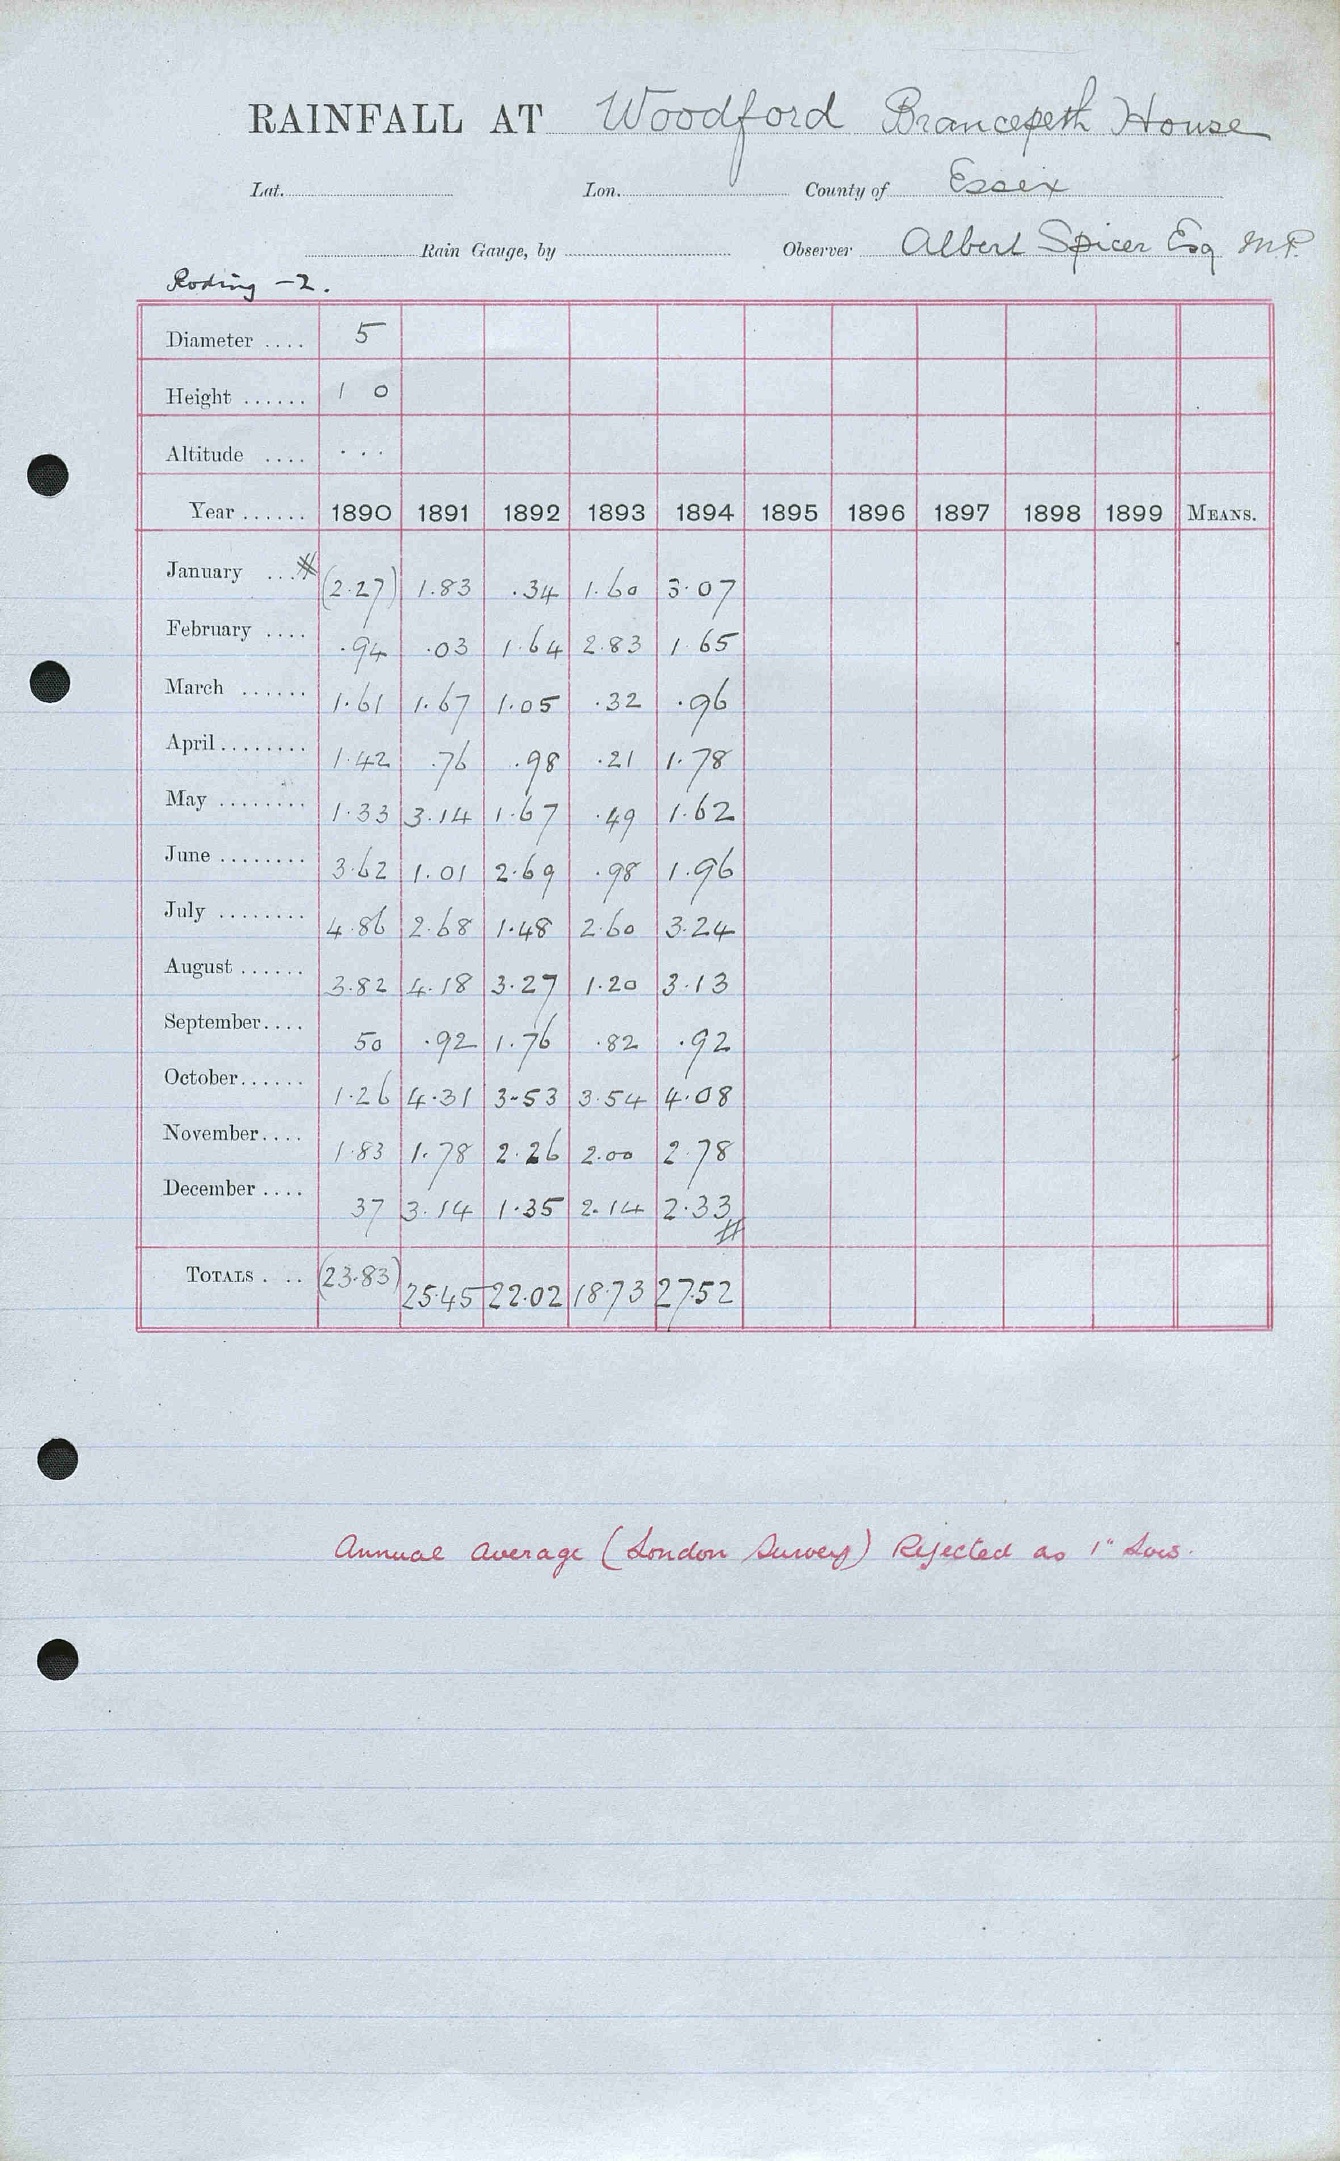 RAINFALL AT Woodford Brancepeth House
Lat. Lon. County of Essex
Rain Gauge, by Observer Albert Spicer Esq M.P.
Roding -2.
Diameter .... 5
Height ...... 1 0
Altitude .... ...
Year ...... 1890 1891 1892 1893 1894 1895 1896 1897 1898 1899 MEANS.
January ...# (2.27) 1.83 .34 1.60 3.07
February .... .94 .03 1.64 2.83 1.65
March ...... 1.61 1.67 1.05 .32 .96
April ........ 1.42 .76 .98 .21 1.78
May ........ 1.33 3.14 1.67 .49 1.62
June ........ 3.62 1.01 2.69 .98 1.96
July ........ 4.86 2.68 1.48 2.60 3.24
August ...... 3.82 4.18 3.27 1.20 3.13
September.... 50 .92 1.76 .82 .92
October...... 1.26 4.31 3.53 3.54 4.08
November.... 1.83 1.78 2.26 2.00 2.78
December .... 37 3.14 1.35 2.14 2.33
#
TOTALS . .. (23.83) 25.45 22.02 18.73 27.52
Annual average (London Survey) Rejected as 1" low.